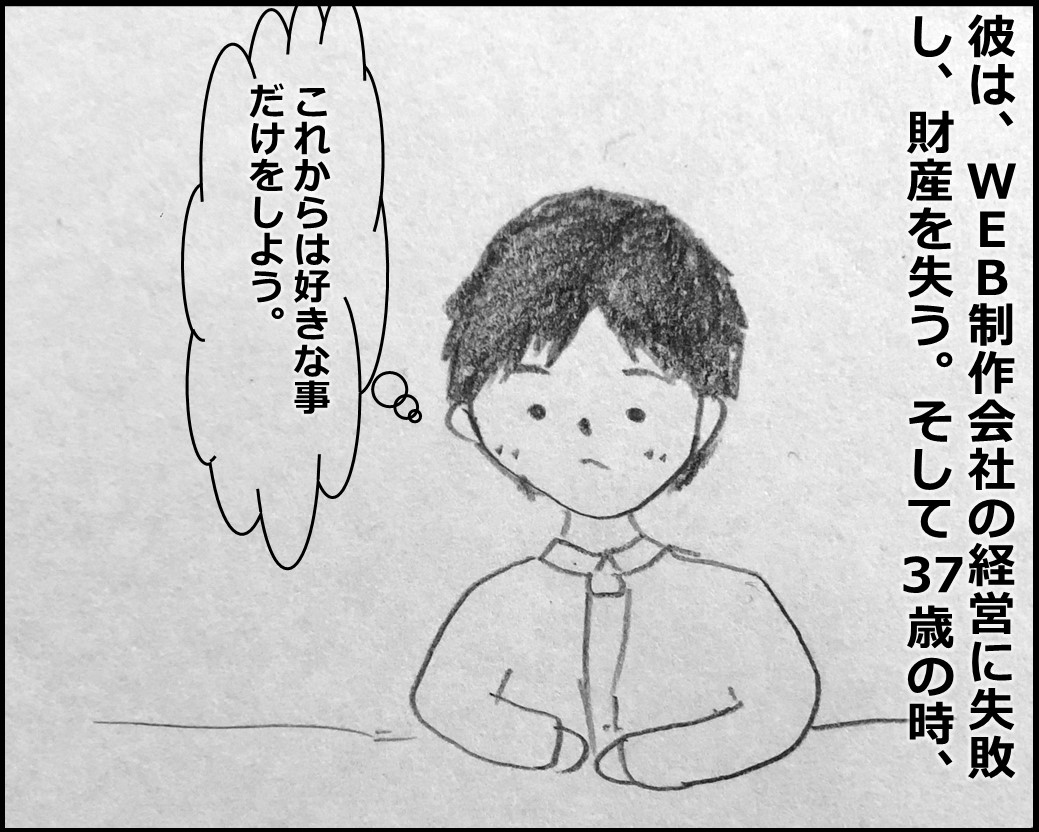 彼は、WEB制作会社の経営に失敗
し、財産を失う。そして37歳の時、
これからは好きな事
だけをしよう。